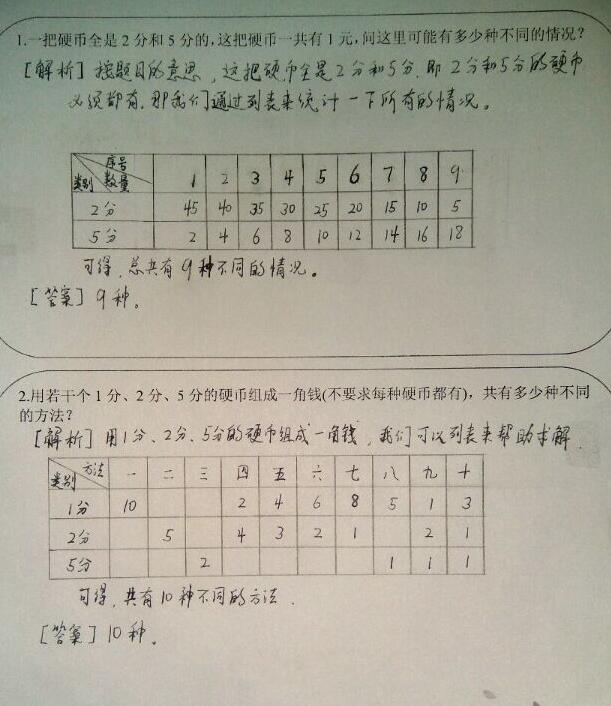 1.一把硬币全是2分和5分的,这把硬币一共有1元,问这里可能有多少种不同的情况?
[解析] 按题目的意思，这把硬币全是2分和5分,即2分和5分的硬币
必须都有,那我们通过列表来统计一下所有的情况。
序号 数量 类别 1 2 3 4 5 6 7 8 9
2分 45 40 35 30 25 20 15 10 5
5分 2 4 6 8 10 12 14 16 18
可得,总共有9种不同的情况。
[答案] 9种。
2.用若干个1分、2分、5分的硬币组成一角钱(不要求每种硬币都有)，共有多少种不同
的方法?
[解析] 用1分、2分、5分的硬币组成一角钱,我们可以列表来帮助求解.
方法 类别 一 二 三 四 五 六 七 八 九 十
1分 10 2 4 6 8 5 1 3
2分 5 4 3 2 1 2 1
5分 2 1 1 1
可得,共有10种不同的方法.
[答案] 10种。